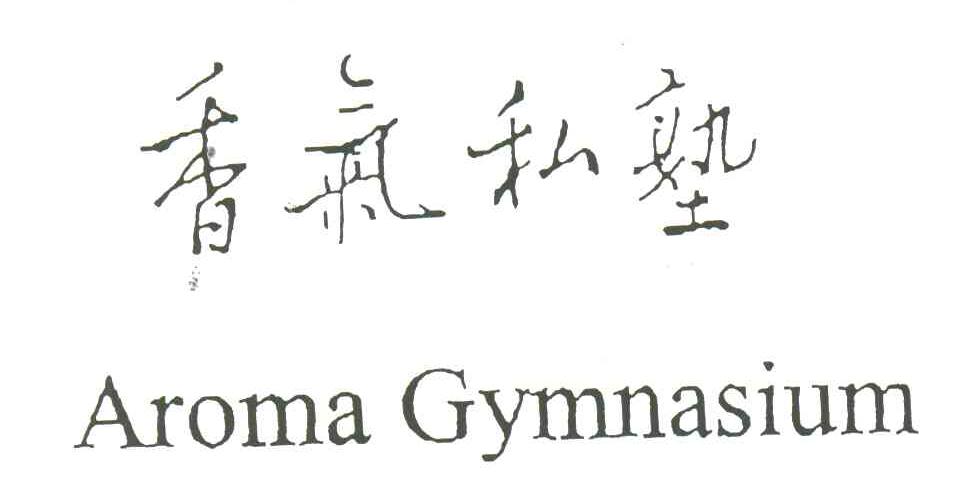 香氣私塾
Aroma Gymnasium